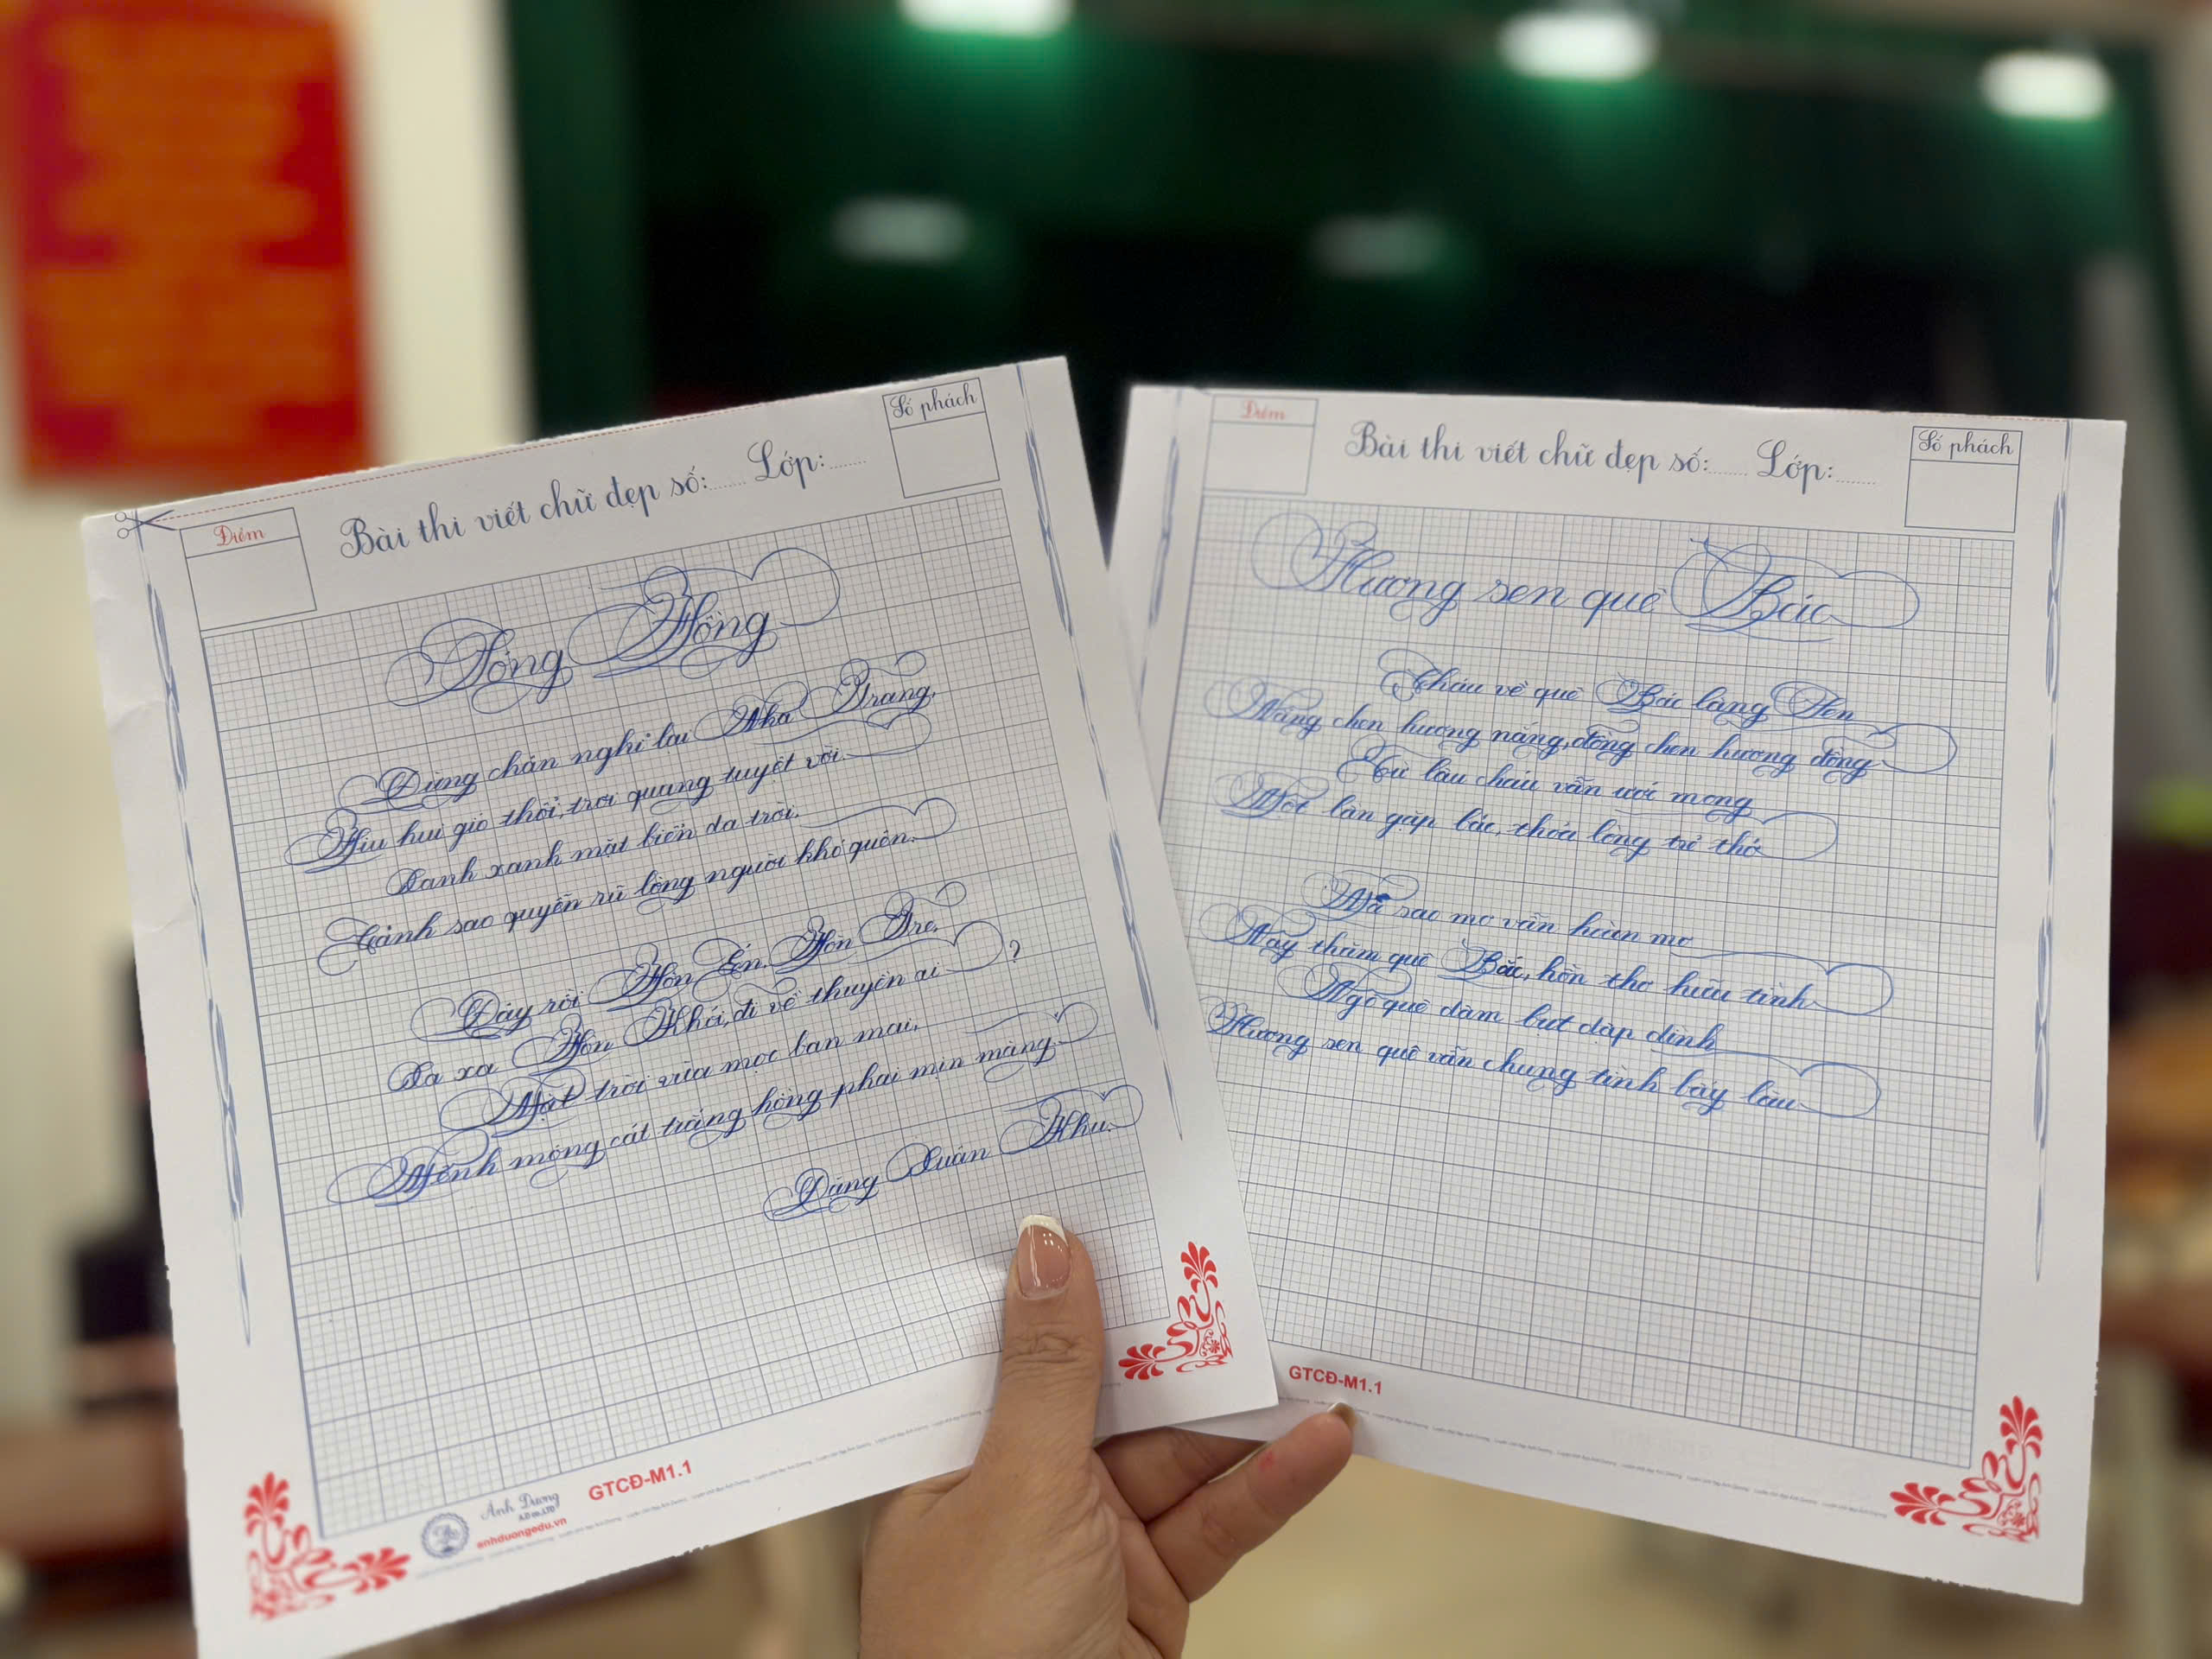 Điểm
Bài thi viết chữ đẹp số:...... Lớp:......
Số phách
Sóng Hồng
Dừng chân nghỉ lại Nha Trang,
Hiu hiu gió thổi, trời quang tuyệt vời.
Xanh xanh mặt biển da trời,
Cảnh sao quyến rũ lòng người khó quên.
Đây rồi Hòn Én, Hòn Tre,
Xa xa Hòn Khói, đi về thuyền ai ?
Mặt trời vừa mọc ban mai,
Mênh mông cát trắng hồng phai mịn màng.
Đặng Xuân Khu.
Ánh Dương
anhduongedu.vn
GTCĐ-M1.1
Điểm
Bài thi viết chữ đẹp số:...... Lớp:......
Số phách
Hương sen quê Bác
Cháu về quê Bác làng Sen
Nắng chen hương nắng, đồng chen hương đồng
Từ lâu cháu vẫn ước mong
Một lần gặp Bác, thỏa lòng trẻ thơ
Mà sao mơ vẫn hoàn mơ
Nay thăm quê Bác, hồn thơ hữu tình
Ngõ quê dâm bụt dập dình
Hương sen quê vẫn chung tình bấy lâu
GTCĐ-M1.1